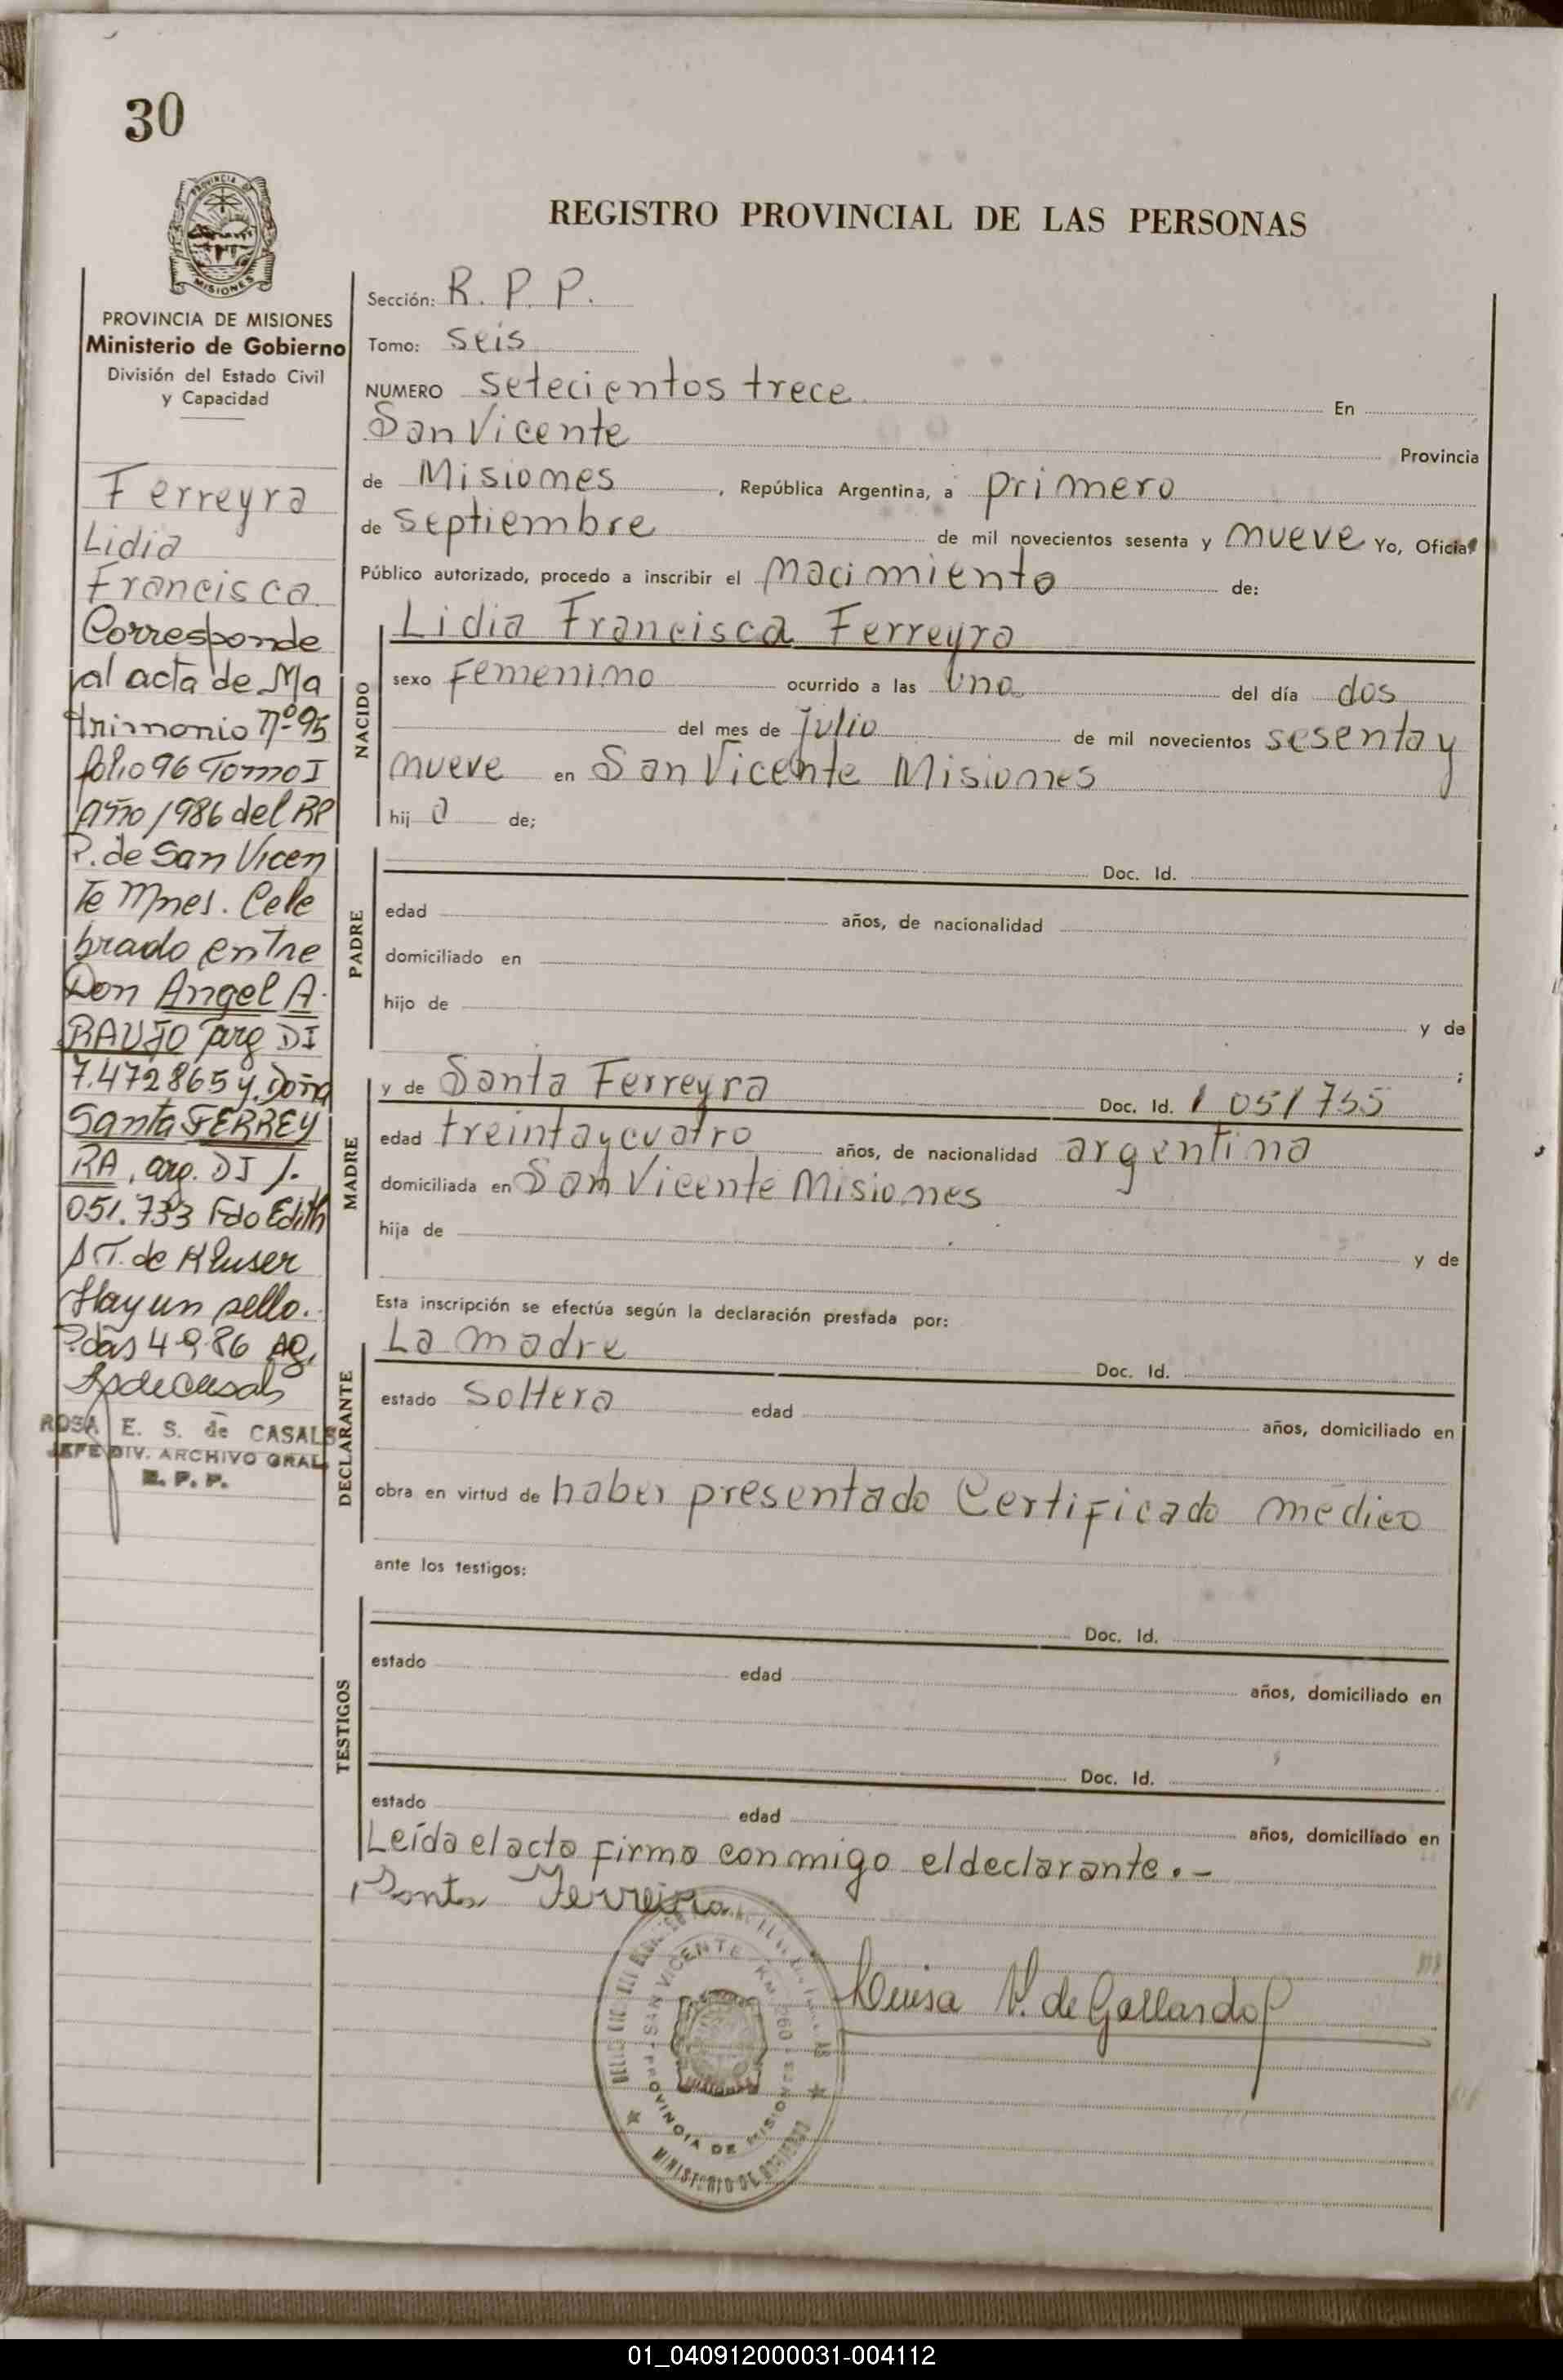 30
PROVINCIA DE
MISIONES
PROVINCIA DE MISIONES
Ministerio de Gobierno
División del Estado Civil
y Capacidad
Ferreyra
Lidia
Francisca
Corresponde
al acta de Ma
trimonio nº 95
folio 96 Tomo I
año 1986 del RP
P. de San Vicen
te Mnes. Cele
brado entre
Don Angel A.
RAUJO arg DI
7.472865 y Doña
Santa FERREY
RA, arg. DI 1.
051.733 Fdo Edith
S T. de Kluser
Hay un sello.
P.das 4-9-86 AG,
ROSA E. S. de CASALS
JEFE DIV. ARCHIVO GRAL.
R. P. P.
REGISTRO PROVINCIAL DE LAS PERSONAS
Sección: R. P. P.
Tomo: seis
NUMERO setecientos trece En
San Vicente Provincia
de Misiones, República Argentina, a primero
de septiembre de mil novecientos sesenta y nueve Yo, Oficial
Público autorizado, procedo a inscribir el nacimiento de:
NACIDO
Lidia Francisca Ferreyra
sexo Femenino ocurrido a las una del día dos
del mes de julio de mil novecientos sesenta y
nueve en San Vicente Misiones
hij a de;
PADRE
Doc. Id.
edad años, de nacionalidad
domiciliado en
hijo de y de
;
MADRE
y de Santa Ferreyra Doc. Id. 1 051 755
edad treinta y cuatro años, de nacionalidad argentina
domiciliada en San Vicente Misiones
hija de y de
Esta inscripción se efectúa según la declaración prestada por:
DECLARANTE
La madre Doc. Id.
estado Soltera edad años, domiciliado en
obra en virtud de haber presentado Certificado médico
ante los testigos:
TESTIGOS
Doc. Id.
estado edad años, domiciliado en
Doc. Id.
estado edad años, domiciliado en
Leída el acta firma conmigo el declarante.-
Santa Ferreira
SAN VICENTE KM.
PROVINCIA DE MISIONES
MINISTERIO DE GOBIERNO
Luisa V. de Gallardo
01_040912000031-004112